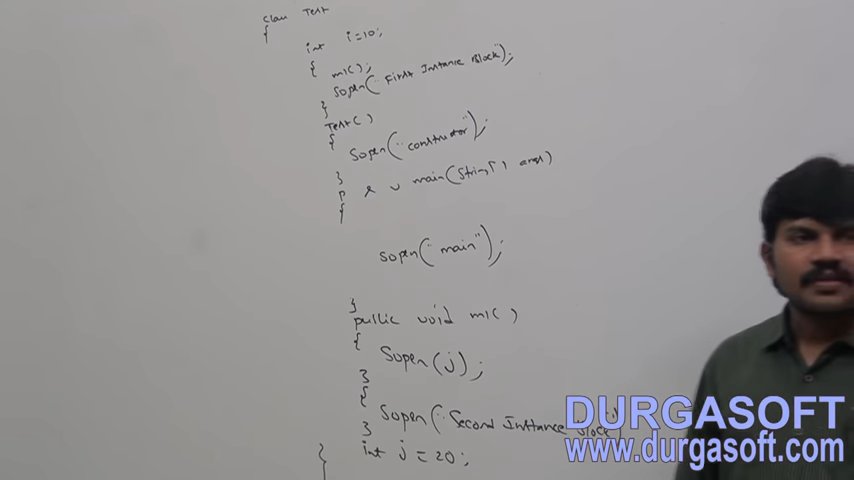 class Test
{
int i=10;
{ m1();
Sopen("First Instance Block");
}
Test()
{
Sopen("constructor");
}
P s v main(String[] args)
{
Sopen("main");
}
public void m1()
{
Sopen(j);
}
{
Sopen("Second Instance Block")
}
int j = 20;
}
DURGASOFT
www.durgasoft.com